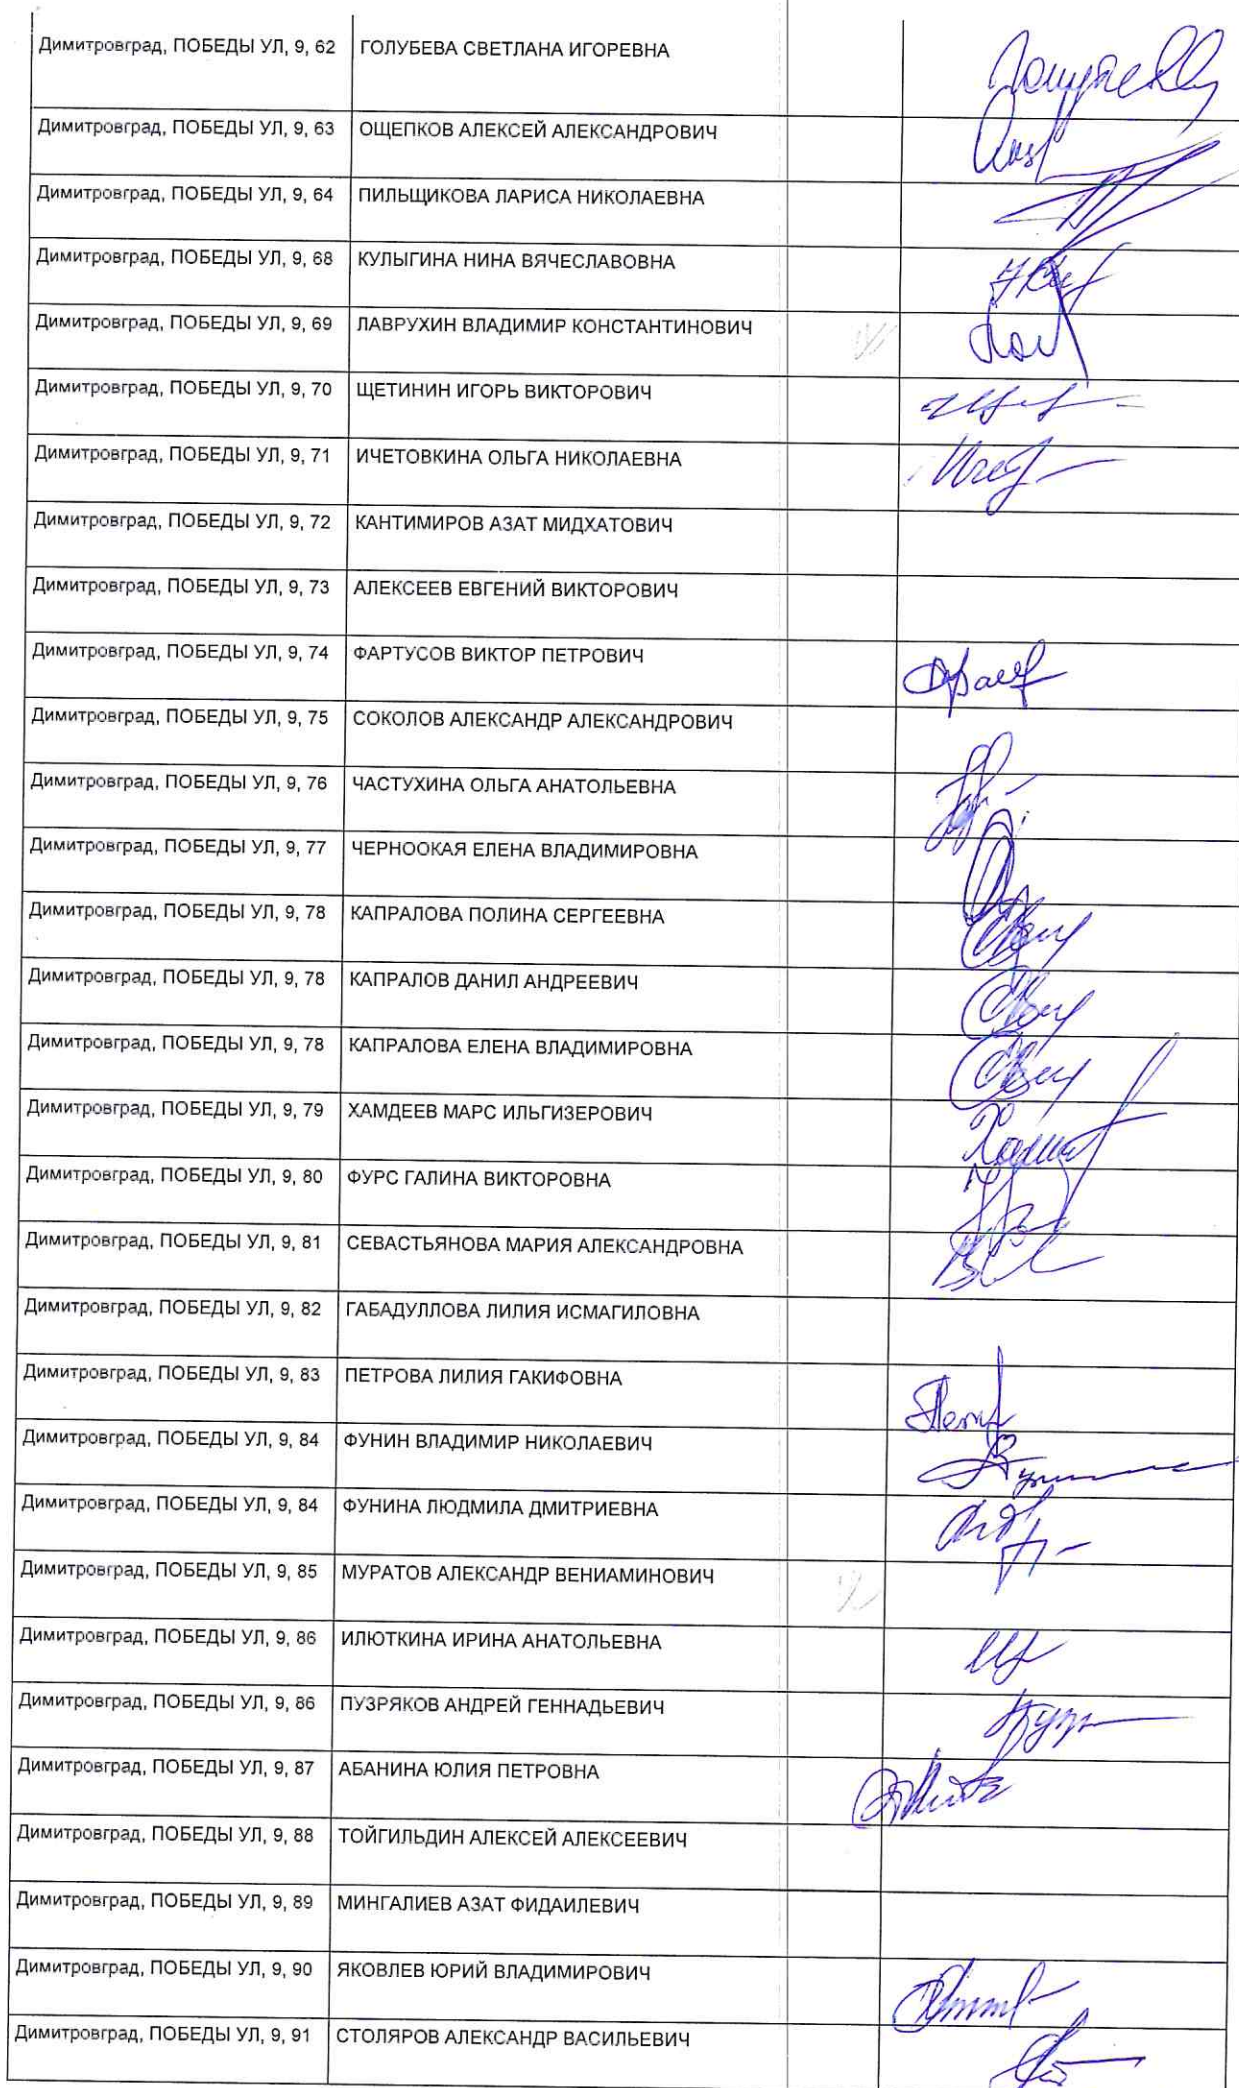 Димитровград, ПОБЕДЫ УЛ, 9, 62 ГОЛУБЕВА СВЕТЛАНА ИГОРЕВНА
Димитровград, ПОБЕДЫ УЛ, 9, 63 ОЩЕПКОВ АЛЕКСЕЙ АЛЕКСАНДРОВИЧ
Димитровград, ПОБЕДЫ УЛ, 9, 64 ПИЛЬЩИКОВА ЛАРИСА НИКОЛАЕВНА
Димитровград, ПОБЕДЫ УЛ, 9, 68 КУЛЫГИНА НИНА ВЯЧЕСЛАВОВНА
Димитровград, ПОБЕДЫ УЛ, 9, 69 ЛАВРУХИН ВЛАДИМИР КОНСТАНТИНОВИЧ
Димитровград, ПОБЕДЫ УЛ, 9, 70 ЩЕТИНИН ИГОРЬ ВИКТОРОВИЧ
Димитровград, ПОБЕДЫ УЛ, 9, 71 ИЧЕТОВКИНА ОЛЬГА НИКОЛАЕВНА
Димитровград, ПОБЕДЫ УЛ, 9, 72 КАНТИМИРОВ АЗАТ МИДХАТОВИЧ
Димитровград, ПОБЕДЫ УЛ, 9, 73 АЛЕКСЕЕВ ЕВГЕНИЙ ВИКТОРОВИЧ
Димитровград, ПОБЕДЫ УЛ, 9, 74 ФАРТУСОВ ВИКТОР ПЕТРОВИЧ
Димитровград, ПОБЕДЫ УЛ, 9, 75 СОКОЛОВ АЛЕКСАНДР АЛЕКСАНДРОВИЧ
Димитровград, ПОБЕДЫ УЛ, 9, 76 ЧАСТУХИНА ОЛЬГА АНАТОЛЬЕВНА
Димитровград, ПОБЕДЫ УЛ, 9, 77 ЧЕРНООКАЯ ЕЛЕНА ВЛАДИМИРОВНА
Димитровград, ПОБЕДЫ УЛ, 9, 78 КАПРАЛОВА ПОЛИНА СЕРГЕЕВНА
Димитровград, ПОБЕДЫ УЛ, 9, 78 КАПРАЛОВ ДАНИЛ АНДРЕЕВИЧ
Димитровград, ПОБЕДЫ УЛ, 9, 78 КАПРАЛОВА ЕЛЕНА ВЛАДИМИРОВНА
Димитровград, ПОБЕДЫ УЛ, 9, 79 ХАМДЕЕВ МАРС ИЛЬГИЗЕРОВИЧ
Димитровград, ПОБЕДЫ УЛ, 9, 80 ФУРС ГАЛИНА ВИКТОРОВНА
Димитровград, ПОБЕДЫ УЛ, 9, 81 СЕВАСТЬЯНОВА МАРИЯ АЛЕКСАНДРОВНА
Димитровград, ПОБЕДЫ УЛ, 9, 82 ГАБАДУЛЛОВА ЛИЛИЯ ИСМАГИЛОВНА
Димитровград, ПОБЕДЫ УЛ, 9, 83 ПЕТРОВА ЛИЛИЯ ГАКИФОВНА
Димитровград, ПОБЕДЫ УЛ, 9, 84 ФУНИН ВЛАДИМИР НИКОЛАЕВИЧ
Димитровград, ПОБЕДЫ УЛ, 9, 84 ФУНИНА ЛЮДМИЛА ДМИТРИЕВНА
Димитровград, ПОБЕДЫ УЛ, 9, 85 МУРАТОВ АЛЕКСАНДР ВЕНИАМИНОВИЧ
Димитровград, ПОБЕДЫ УЛ, 9, 86 ИЛЮТКИНА ИРИНА АНАТОЛЬЕВНА
Димитровград, ПОБЕДЫ УЛ, 9, 86 ПУЗРЯКОВ АНДРЕЙ ГЕННАДЬЕВИЧ
Димитровград, ПОБЕДЫ УЛ, 9, 87 АБАНИНА ЮЛИЯ ПЕТРОВНА
Димитровград, ПОБЕДЫ УЛ, 9, 88 ТОЙГИЛЬДИН АЛЕКСЕЙ АЛЕКСЕЕВИЧ
Димитровград, ПОБЕДЫ УЛ, 9, 89 МИНГАЛИЕВ АЗАТ ФИДАИЛЕВИЧ
Димитровград, ПОБЕДЫ УЛ, 9, 90 ЯКОВЛЕВ ЮРИЙ ВЛАДИМИРОВИЧ
Димитровград, ПОБЕДЫ УЛ, 9, 91 СТОЛЯРОВ АЛЕКСАНДР ВАСИЛЬЕВИЧ